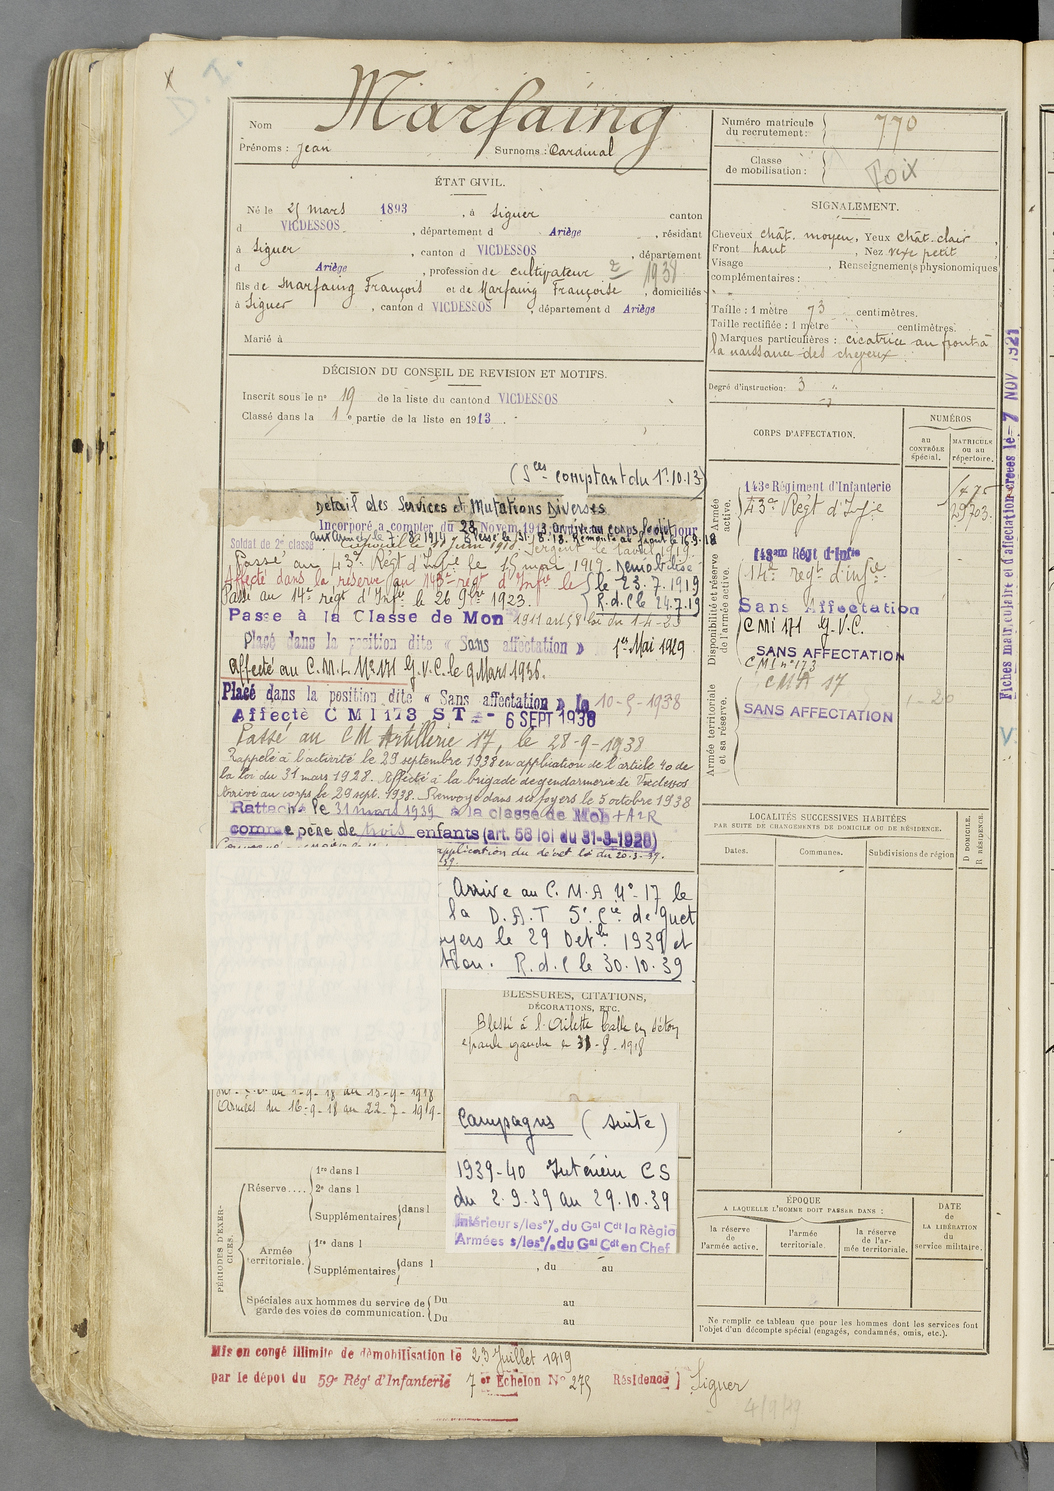 Nom Marfaing
Prénoms : Jean Surnoms : Cardinal
Numéro matricule du recrutement : 770
Classe de mobilisation :
Foix
ÉTAT CIVIL.
Né le 25 mars 1893, à Siguer canton
d VICDESSOS, département d Ariège, résidant
à Siguer, canton d VICDESSOS, département
d Ariège, profession de cultivateur 1938
fils de Marfaing François et de Marfaing Françoise, domiciliés
à Siguer, canton d VICDESSOS, département d Ariège
Marié à
SIGNALEMENT.
Cheveux chât. moyen, Yeux chât. clair,
Front haut, Nez vexe petit,
Visage, Renseignements physionomiques
complémentaires :
Taille : 1 mètre 73 centimètres.
Taille rectifiée : 1 mètre centimètres.
Marques particulières : cicatrice au front à
la naissance des cheveux.
Degré d'instruction : 3
DÉCISION DU CONSEIL DE REVISION ET MOTIFS.
Inscrit sous le no 19 de la liste du canton d VICDESSOS
Classé dans la 1e partie de la liste en 1913.
(Sces comptant du 1er.10.13)
Détail des Services et Mutations Diverses
Incorporé à compter du 28 Novem. 1913. Arrivé au corps le dit jour
Soldat de 2e classe. Caporal le 11 Juin 1918. Sergent le 1 avril 1919.
Passé au 43e Régt d'Infie le 15 mars 1919. Démobilisé
Affecté dans la réserve au 143e régt d'Infie le le 23.7.1919
Passé au 14e régt d'Infie le 26 9bre 1923. R.d.C le 24.7.19
Passé à la Classe de Mon 1911 art 58 loi du 1-4-23
Placé dans la position dite « Sans affectation » 1er Mai 1929
Affecté au C.M.I. No 171 G.V.C. le 9 Mars 1936.
Placé dans la position dite « Sans affectation » le 10-5-1938
Affecté CMI 173 ST - 6 SEPT 1938
Passé au CM Artillerie 17, le 28-9-1938
Rappelé à l'activité le 29 septembre 1938 en application de l'article 40 de
la loi du 31 mars 1928. Affecté à la brigade de gendarmerie de Vicdessos
Arrivé au corps le 29 sept. 1938. Renvoyé dans ses foyers le 5 octobre 1938
Rattaché le 31 mars 1939 à la classe de Mob
comme père de trois enfants (art. 58 loi du 31-3-1928)
application du décret loi du 20-3-39.
Arrivé au C.M.A No 17 le
la D.A.T 5e Cie de guet
yers le 29 Octbre 1939 et
tion. R.d.C le 30.10.39
BLESSURES, CITATIONS,
DÉCORATIONS, ETC.
Blessé à l'Ailette balle en séton
épaule gauche le 31-8-1918
au 15-9-1918
Armées du 16-9-18 au 22-7-1919
Campagnes (suite)
1939-40 Intérieur CS
du 2.9.39 au 29.10.39
Intérieur s/les o/. du Gal Cdt la Régio
Armées s/les o/. du Gal Cdt en Chef
CORPS D'AFFECTATION.
NUMÉROS
AU CONTRÔLE spécial.
MATRICULE ou au répertoire.
Armée active.
143e Régiment d'Infanterie
43e Régt d'Infie
29703
Disponibilité et réserve de l'armée active.
143am Régt d'Infie
14e regt d'infie
Sans Affectation
CMI 171 G.V.C.
SANS AFFECTATION
CMI no 173
Armée territoriale et sa réserve.
CMA 17
SANS AFFECTATION
Fiches matriculaire et d'affectation créées le 7 NOV 1921
LOCALITÉS SUCCESSIVES HABITÉES
PAR SUITE DE CHANGEMENTS DE DOMICILE OU DE RÉSIDENCE.
Dates. Communes. Subdivisions de région
D DOMICILE.
R RÉSIDENCE.
PÉRIODES D'EXERCICES.
Réserve.... 1re dans l
2e dans l
Supplémentaires dans l
Armée territoriale. 1re dans l
Supplémentaires dans l, du au
Spéciales aux hommes du service de garde des voies de communication. Du au
Du au
ÉPOQUE
A LAQUELLE L'HOMME DOIT PASSER DANS :
la réserve de l'armée active.
l'armée territoriale.
la réserve de l'armée territoriale.
DATE
DE
LA LIBÉRATION
du
service militaire.
Ne remplir ce tableau que pour les hommes dont les services font
l'objet d'un décompte spécial (engagés, condamnés, omis, etc.).
Mis en congé illimité de démobilisation le 23 Juillet 1919
par le dépôt du 59e Régt d'Infanterie 7er Echelon No 275 Résidence Siguer